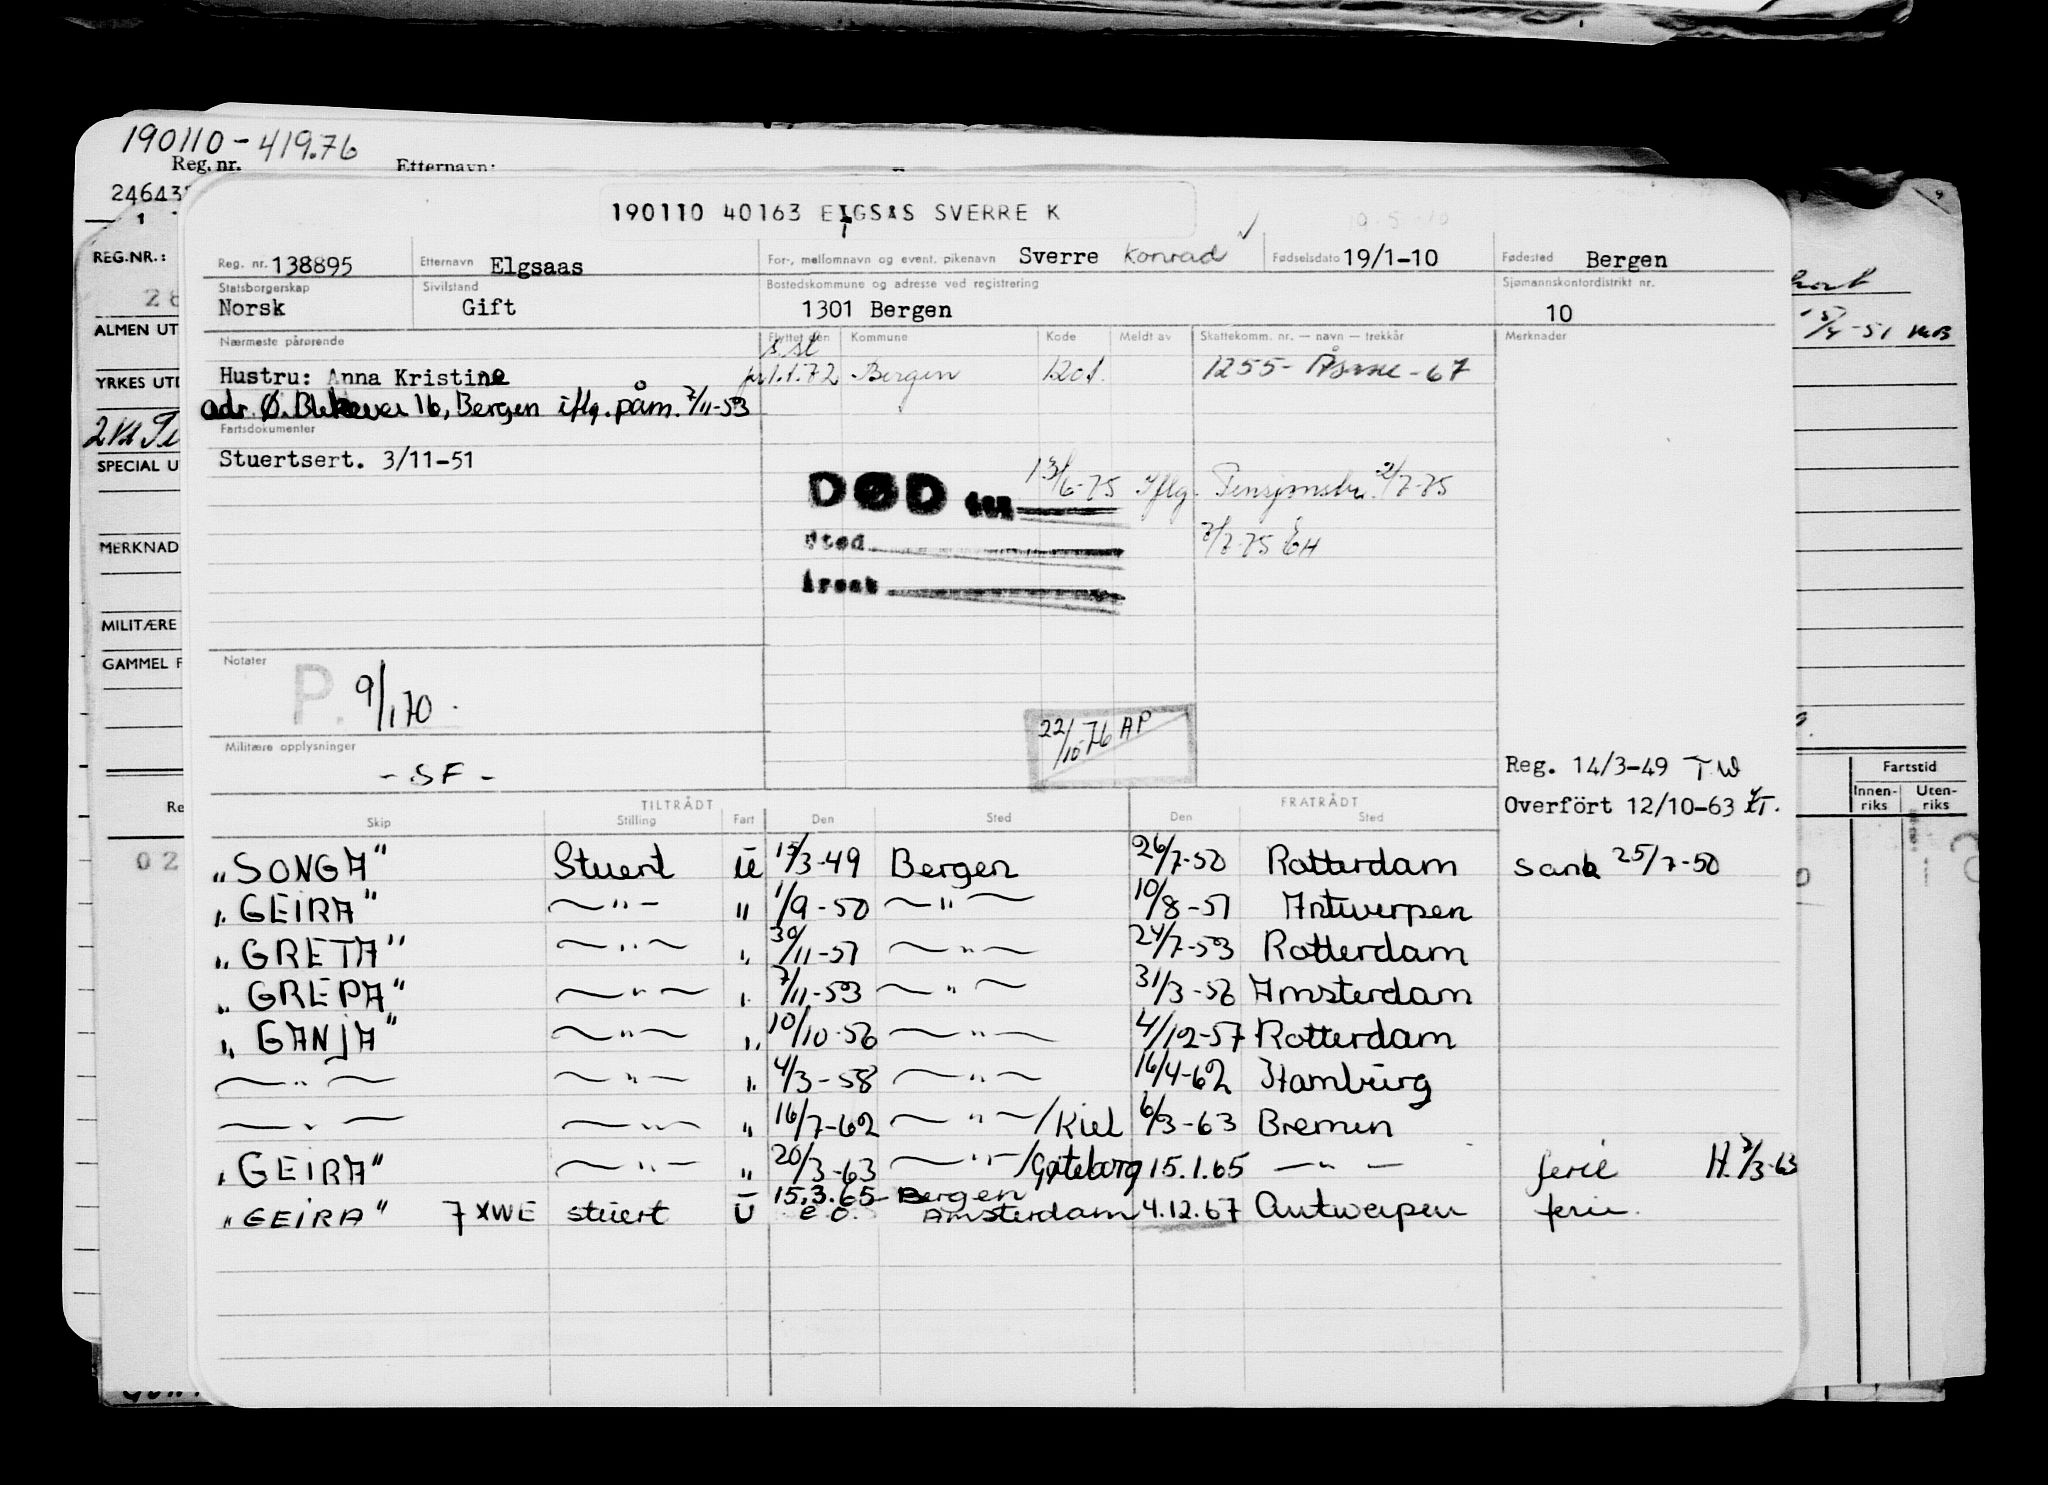 190110-419.76
Reg. nr. Etternavn:
24643
1
190110 40163 ELGSAS SVERRE K
REG.NR.:
28
ALMEN UT
YRKES UTD
SPECIAL U
MERKNAD
MILITÆRE
GAMMEL F
Re
02
Reg. nr. 138895 Etternavn Elgsaas For-, mellomnavn og event. pikenavn Sverre Konrad Fødselsdato 19/1-10 Fødested Bergen
Statsborgerskap Sivilstand Bostedskommune og adresse ved registrering Sjømannskontordistrikt nr.
Norsk Gift 1301 Bergen 10
Nærmeste pårørende Flyttet den Kommune Kode Meldt av Skattekomm. nr. — navn — trekkår Merknader
s.st
Hustru: Anna Kristine 1.1.72 Bergen 1201. 1255- Åsane -67
adr. Ø. Blekevei 16, Bergen iflg. påm. 7/11-53
Fartsdokumenter
Stuertsert. 3/11-51
DØD den 13/6-75 Iflg. 2/7-75
Sted 2/7-75 EH
Årsak
Notater
P. 9/1 70.
22/10-76 AP
Militære opplysninger
- SF -
Reg. 14/3-49 TW
Overført 12/10-63
Fartstid
Innen-riks Uten-riks
TILTRÅDT FRATRÅDT
Skip Stilling Fart Den Sted Den Sted
"SONGA" Stuert U 15/3-49 Bergen 26/7-50 Rotterdam 25/7-50
"GEIRA" — " — " 1/9-50 — " — 10/8-51 Antwerpen
"GRETA" — " — " 30/11-51 — " — 24/7-53 Rotterdam
"GREPA" — " — " 7/11-53 — " — 31/3-56 Amsterdam
"GANJA" — " — " 10/10-56 — " — 4/12-57 Rotterdam
— " — — " — " 4/3-58 — " — 16/4-62 Hamburg
— " — — " — " 16/7-62 — " — /Kiel 6/3-63 Bremen
"GEIRA" — " — " 20/3-63 — " — /Gøteborg 15.1.65 — " — ferie H. 7/3-63
"GEIRA" 7XWE stuert U 15.3.65 e.o. Bergen Amsterdam 4.12.67 Antwerpen ferie.